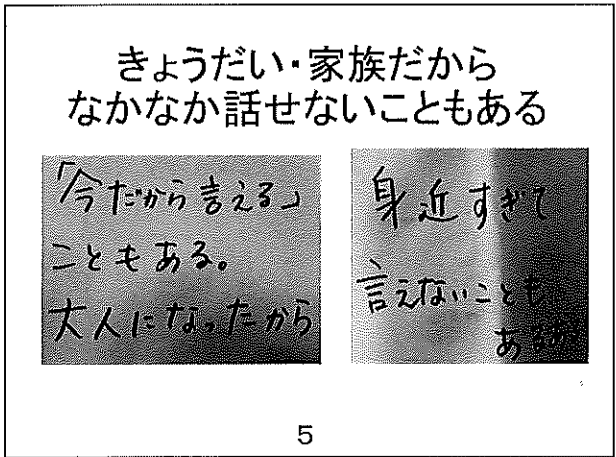 きょうだい・家族だから
なかなか話せないこともある
「今だから言える」
こともある。
大人になったから
身近すぎて
言えないことも
ある
5